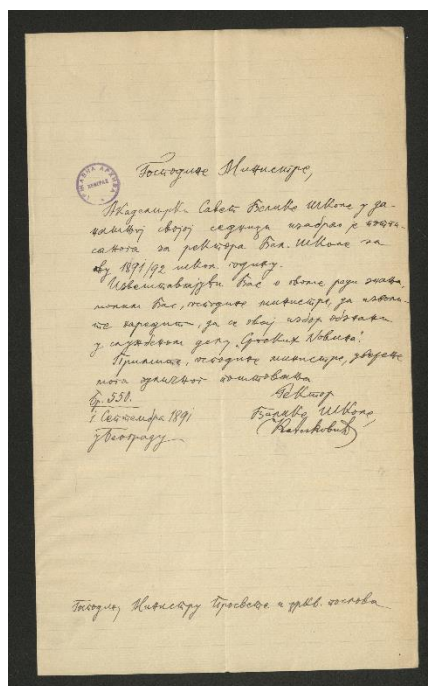 Господине Министре,
Академијски Савет Велике Школе у да-
нашњој својој седници изабрао је потпи-
санога за ректора Вел. Школе за
ову 1891/92 школ. годину.
Извештавајући Вас о овоме ради знања,
молим Вас, господине министре, да изволи-
те наредити, да се овај избор објави
у службеном делу „Српских Новина“.
Примите, господине министре, уверење
мога одличног поштовања
Бр. 550.
1 Септембра 1891
у Београду
Ректор
Велике Школе,
Господину Министру Просвете и црkв. послова